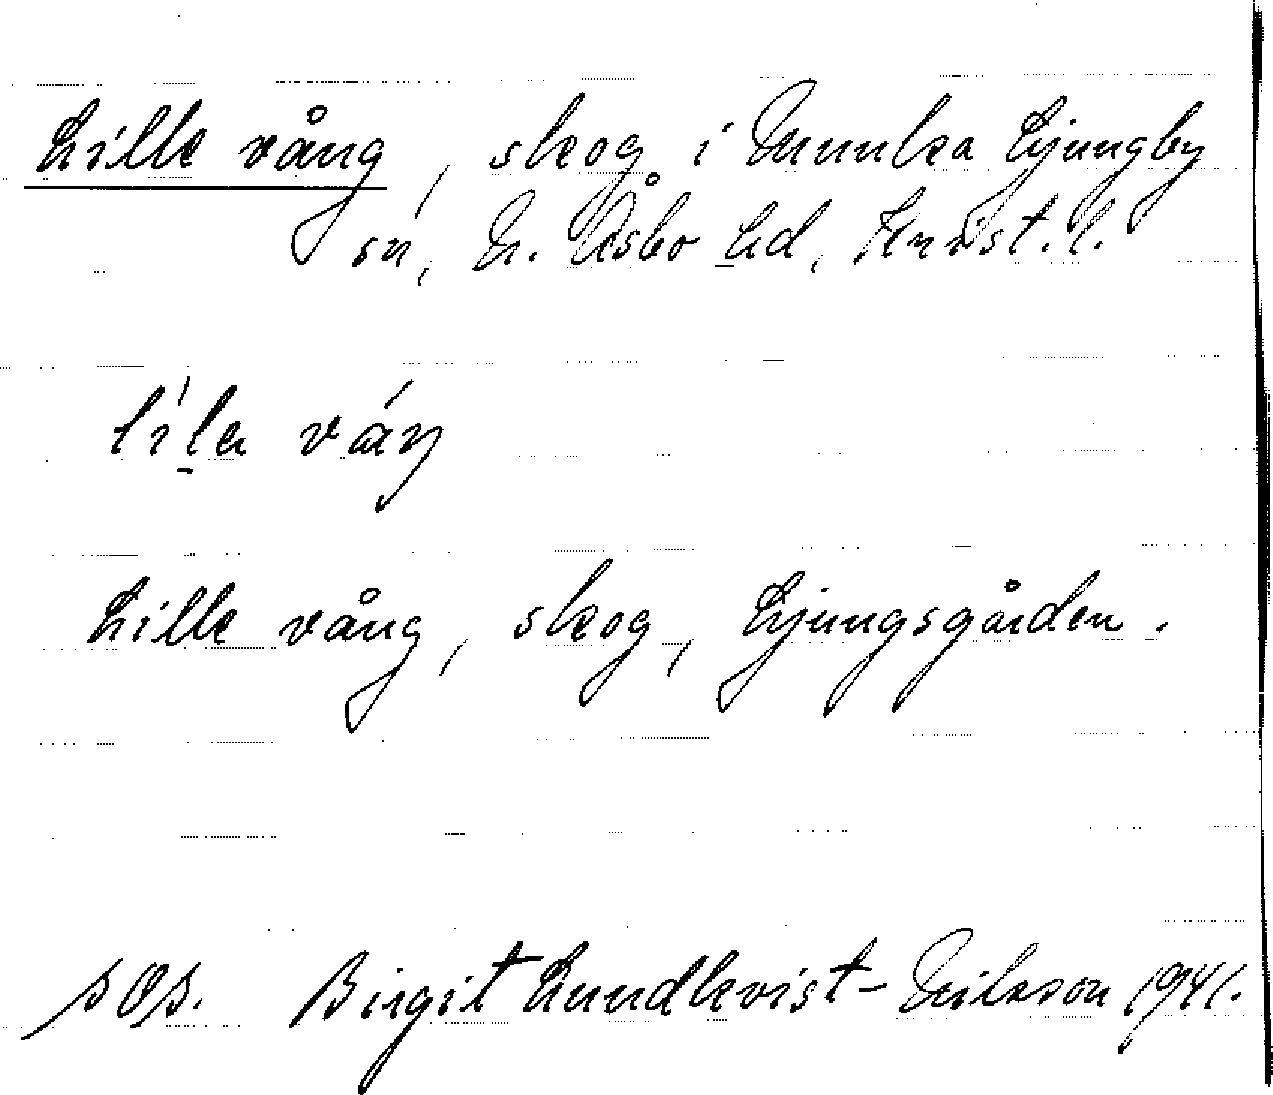 Lille vång, skog i Munka Ljungby
sn, N. Åsbo hd, Krist. l.
lila váŋ
Lille vång, skog, Ljungsgården.
Birgit Lundkvist-Nilsson 1941.